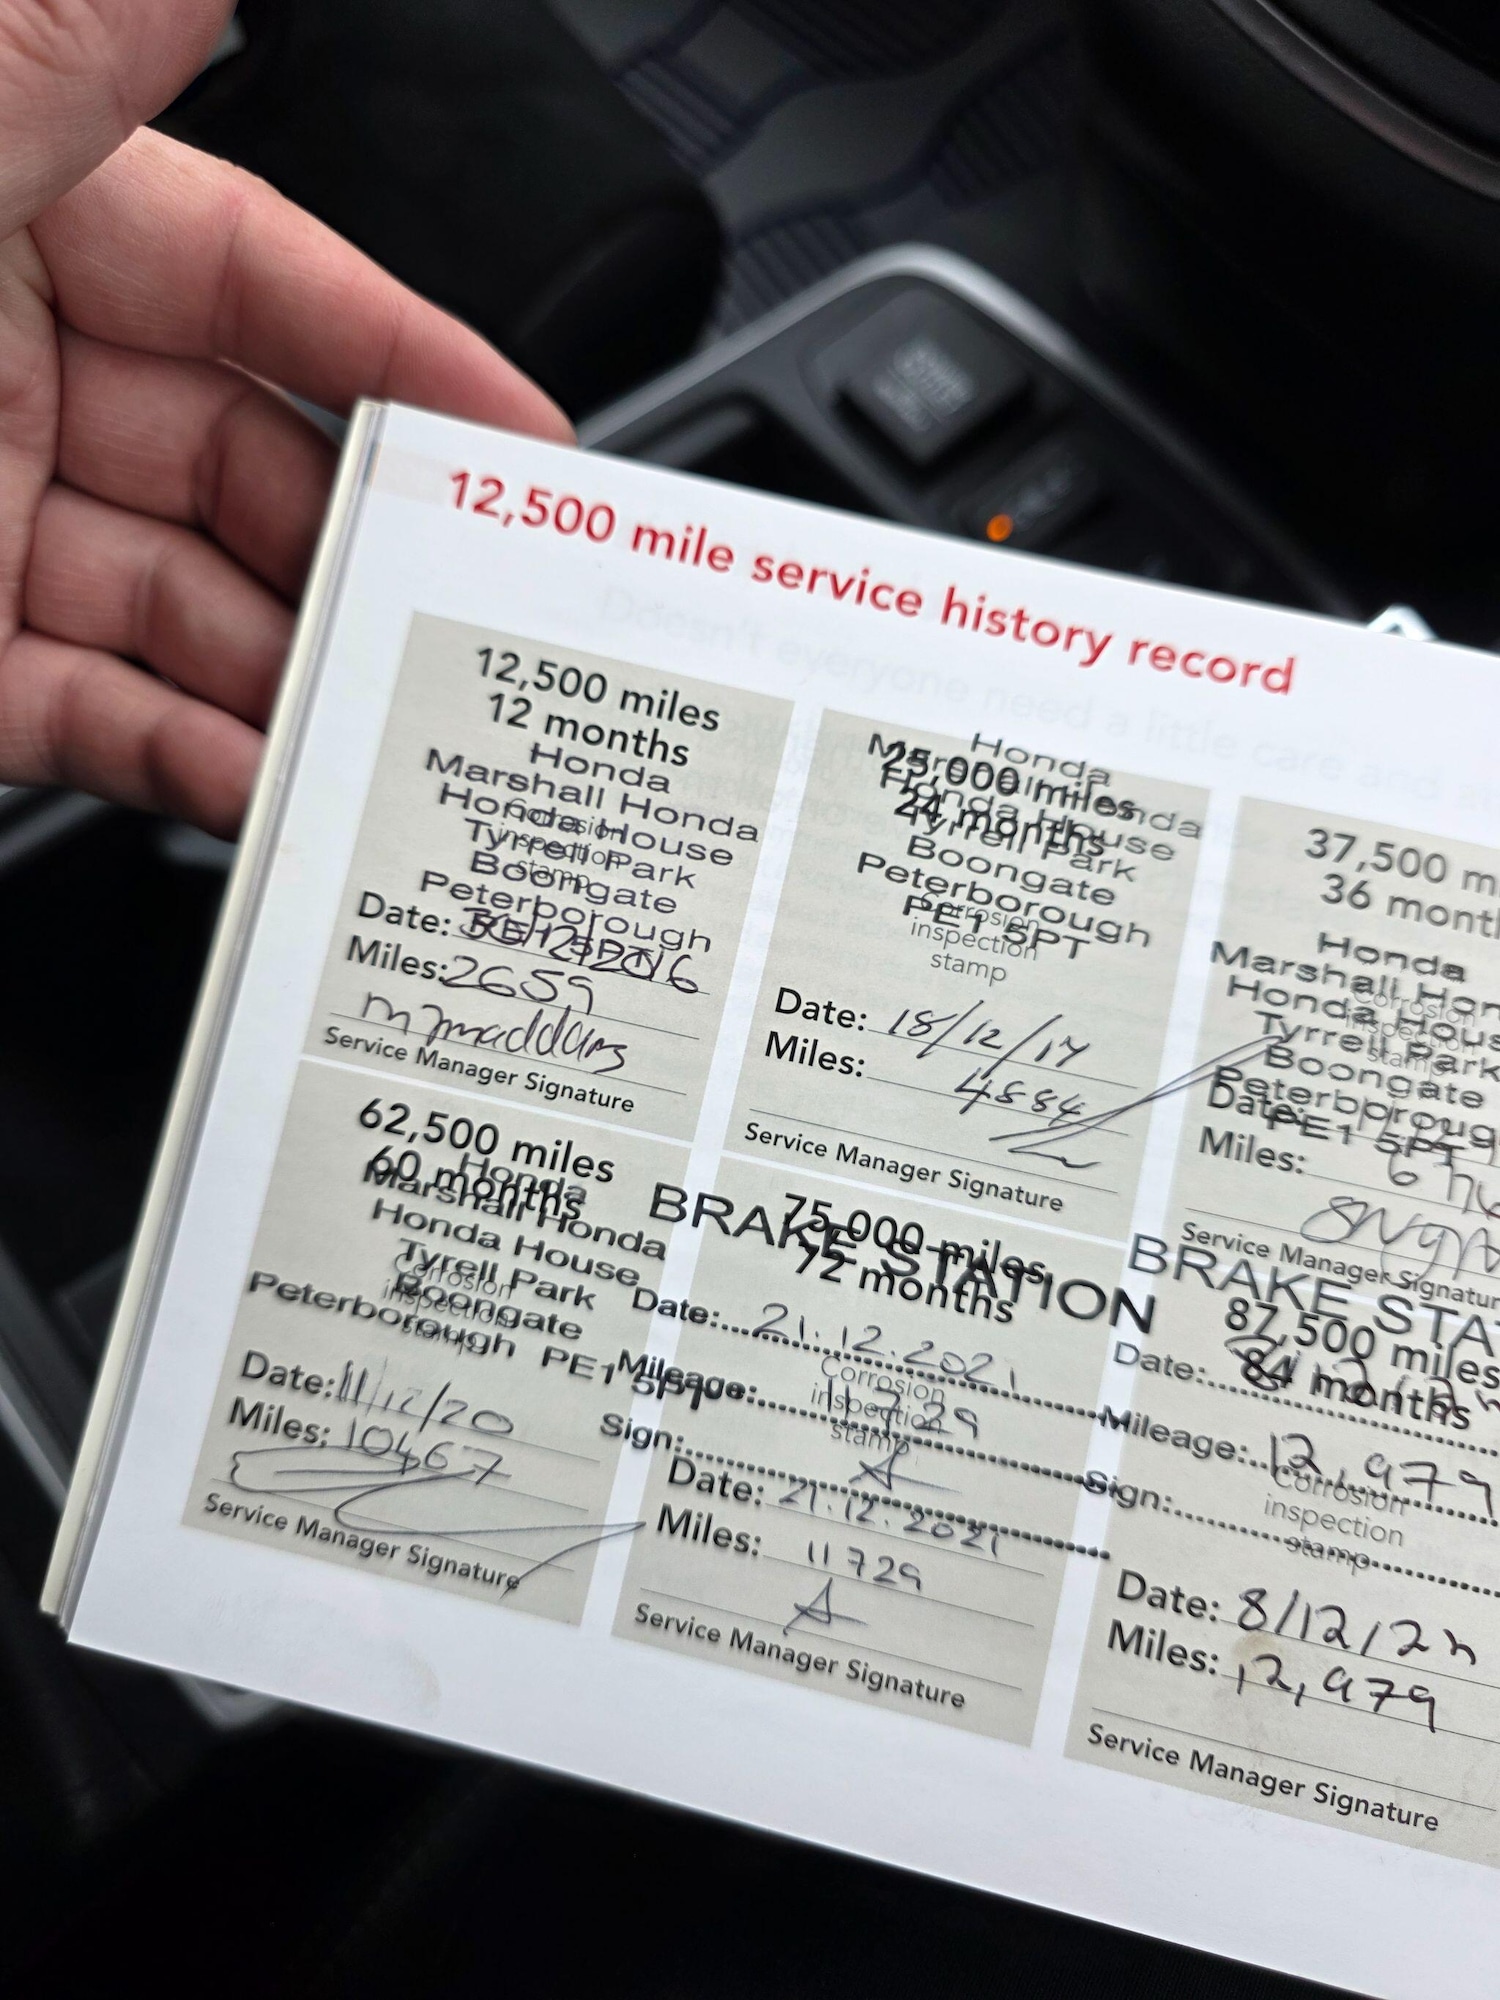 12,500 mile service history record
12,500 miles
12 months
Honda
Marshall Honda
Honda House
Tyrrell Park
Boongate
Peterborough
PE1 5PT
Corrosion
inspection
stamp
Date: 30/12/2016
Miles: 2659
Service Manager Signature
25,000 miles
24 months
Honda
Marshall Honda
Honda House
Tyrrell Park
Boongate
Peterborough
PE1 5PT
Corrosion
inspection
stamp
Date: 18/12/17
Miles: 4884
Service Manager Signature
37,500 m
36 mont
Honda
Marshall Hon
Honda Hous
Tyrrell Park
Boongate
Peterboroug
PE1 5PT
Corrosion
inspection
stamp
Date:
Miles:
Service Manager Signatur
62,500 miles
60 months
Honda
Marshall Honda
Honda House
Tyrell Park
Boongate
Peterborough PE1 5PT
Corrosion
inspection
stamp
Date: 11/12/20
Miles: 10467
Service Manager Signature
75,000 miles
72 months
BRAKE STATION
Date: 21.12.2021
Mileage: 11729
Sign:
Corrosion
inspection
stamp
Date: 21.12.2021
Miles: 11729
Service Manager Signature
BRAKE STA
87,500 miles
84 months
Date:
Mileage: 12,979
Sign:
Corrosion
inspection
stamp
Date: 8/12/22
Miles: 12,979
Service Manager Signature